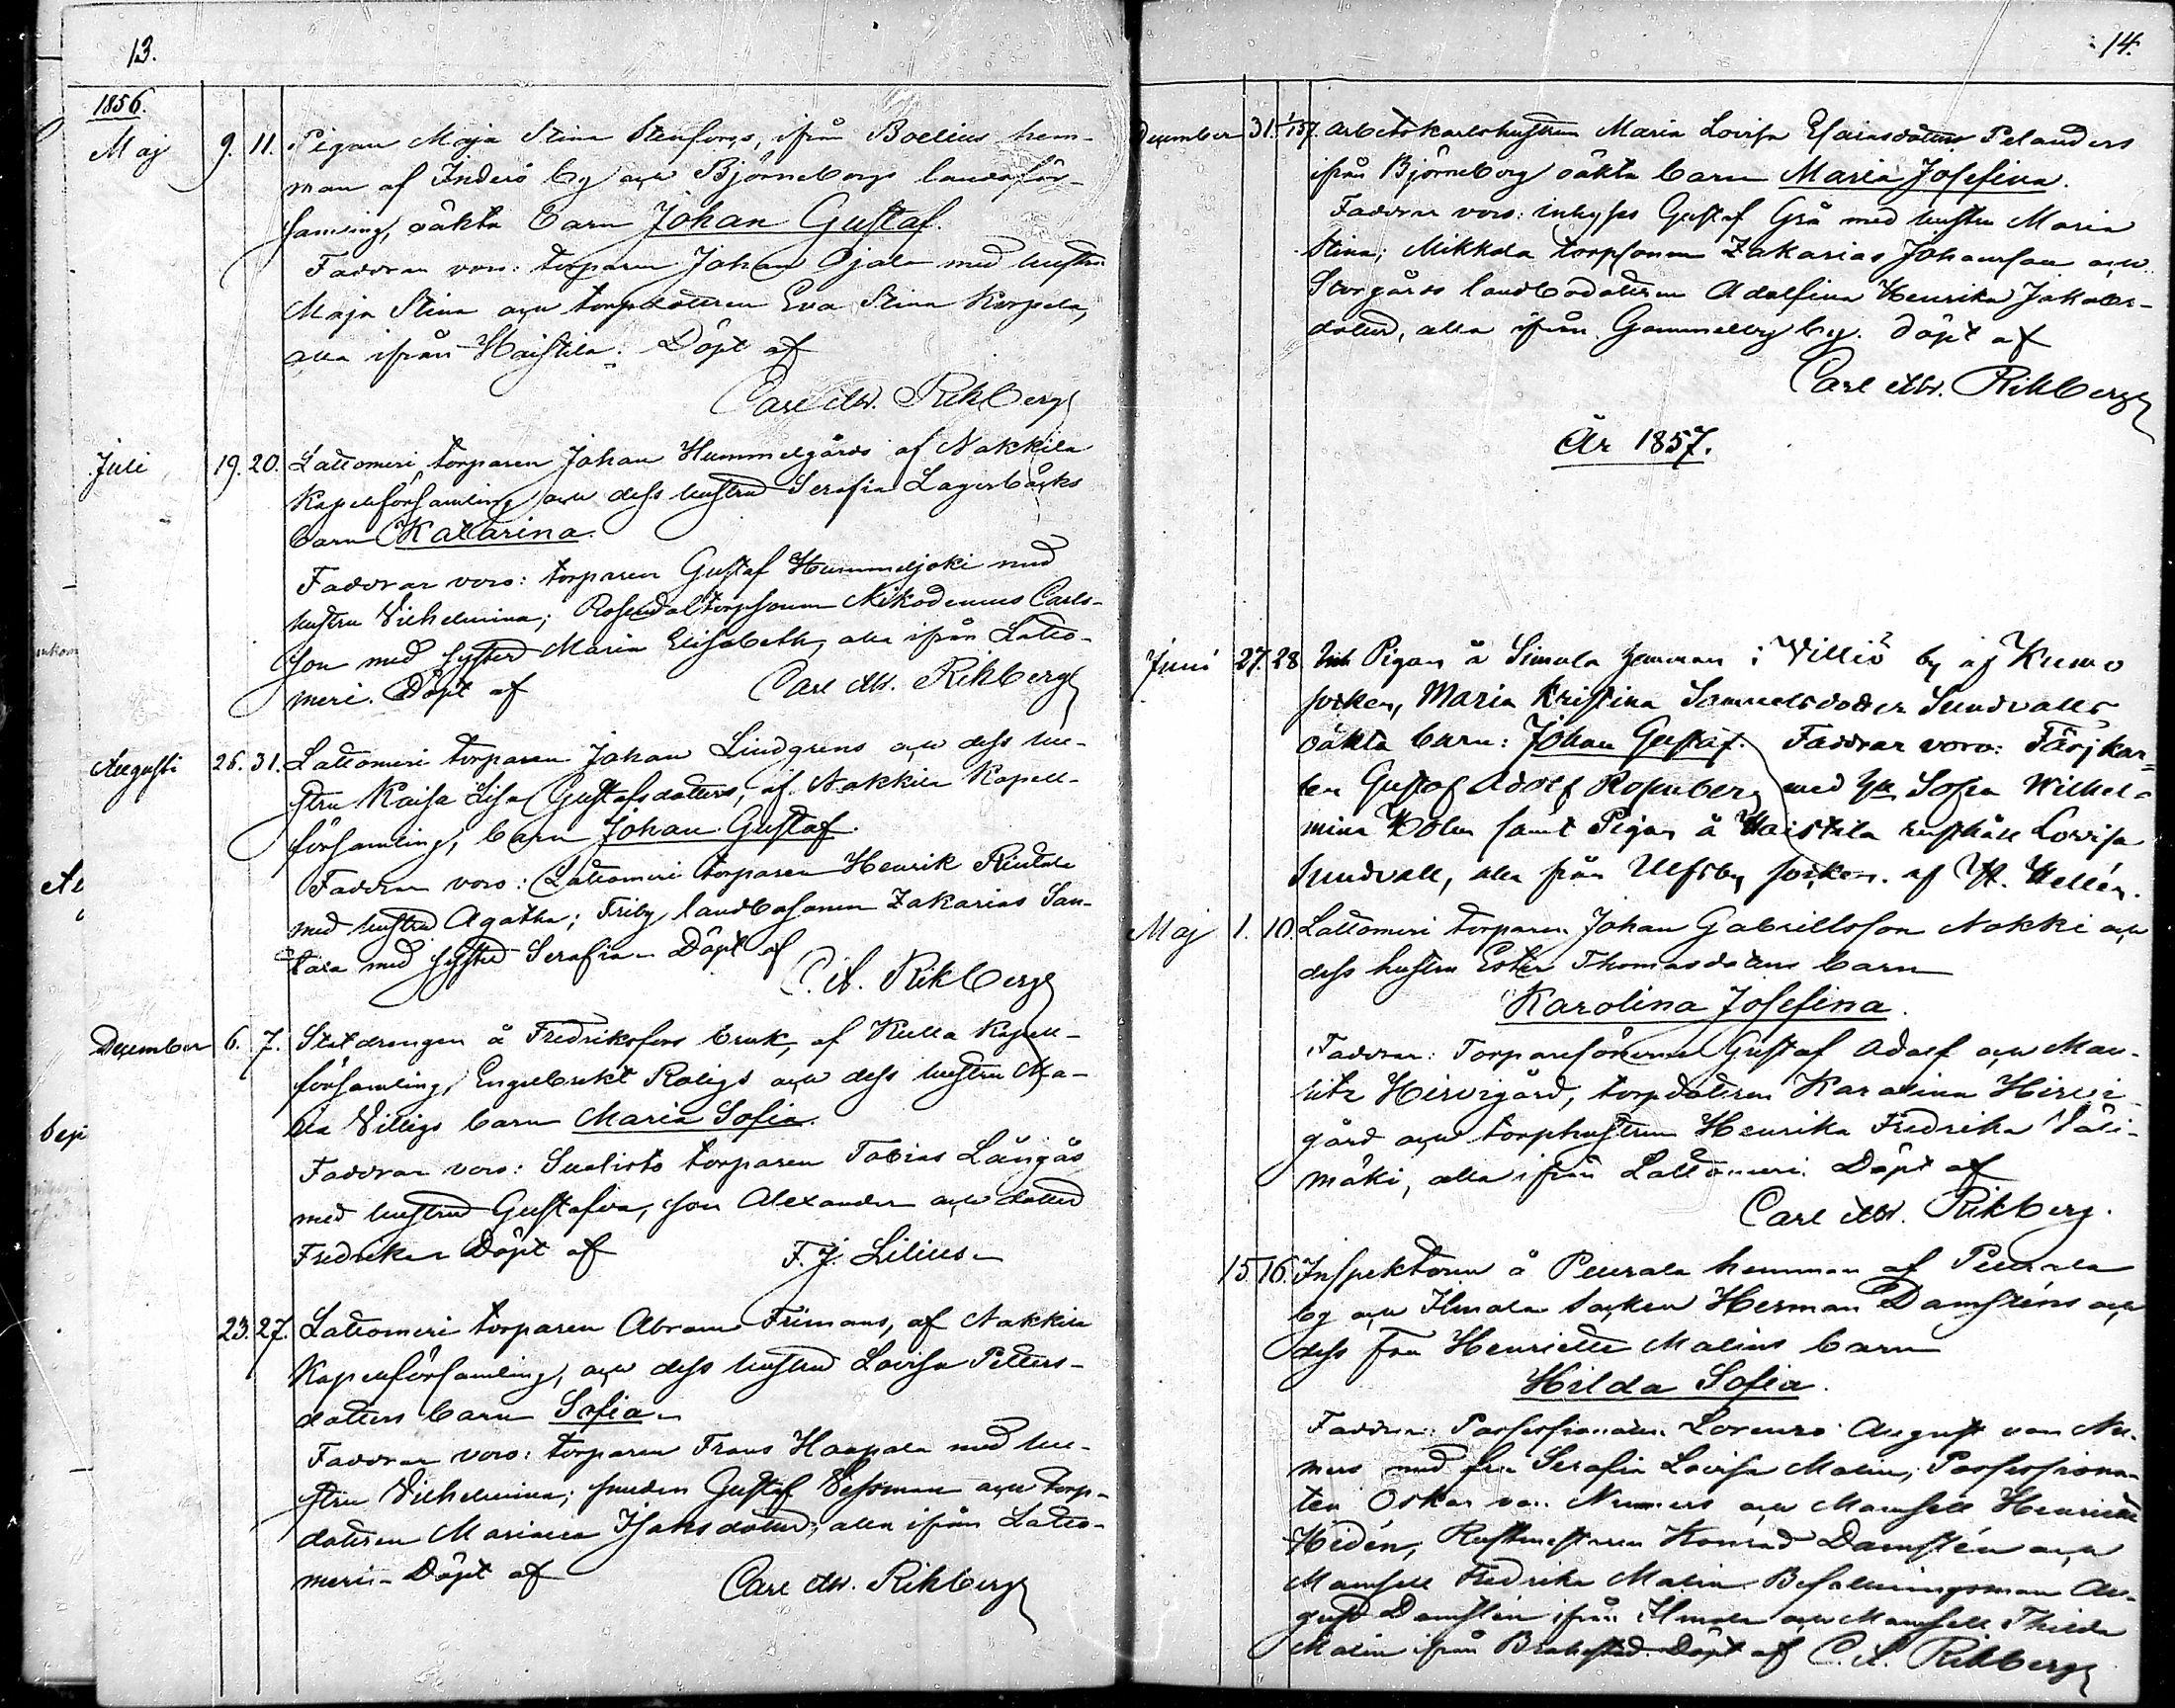 13.
1856.
Maj 9. 11. Pigan Maja Stina Stenfors, ifrån Boelius hem-
man af Inderö by och Björneborgs landsför-
samling, oäkta barn Johan Gustaf.
Faddrar voro: torparen Johan Ojala med hustru
Maja Stina och torpdottren Eva Stina Korpela,
alla ifrån Haistila. Döpt af
Carl Aw. Rikberg
Juli 19. 20. Lattomeri torparen Johan Hummelgårds af Nakkila
Kapellförsamling och dess hustru Serafia Lagerbäcks
barn Katarina.
Faddrar voro: torparen Gustaf Hummeljoki med
hustru Vilhelmina; Rosendal torpsonen Nikodemus Carls-
son med syster Maria Elisabeth, alla ifrån Latto-
meri. Döpt af Carl Aw. Rikberg
Augusti 26. 31. Lattomeri torparen Johan Lindgrens och dess hu-
stru Kaisa Lisa Gustafsdotters, af Nakkila Kapell-
församling, barn Johan Gustaf.
Faddrar voro: Lattomeri torparen Henrik Rintala
med hustru Agatha; Friby landbosonen Zakarias San-
tara med syster Serafia. Döpt af
C. A. Rikberg
December 6. 7. Statdrengen å Fredriksfors bruk, af Kulla Kapell-
församling, Engelbrekt Roligs och dess hustru Ma-
ria Villigs barn Maria Sofia.
Faddrar voro: Suolisto torparen Tobias Långås
med hustru Gustafva, son Alexander och dotter
Fredrika. Döpt af F. J. Lilius.
23. 27. Lattomeri torparen Abram Frimans, af Nakkila
Kapellförsamling, och dess hustru Lovisa Petters-
dotters barn Sofia.
Faddrar voro: torparen Frans Haapala med hu-
stru Vilhelmina; smeden Gustaf Vessman och torp-
dottren Mariana Isaksdotter, alla ifrån Latto-
meri. Döpt af Carl Aw. Rikberg
14.
December 31. 1/1 57. Arbetskarlshustrun Maria Lovisa Esaiasdotters Pelanders
ifrån Björneborg oäkta barn Maria Josefina.
Faddrar voro: inhyses Gustaf Grå med hustru Maria
Stina; Mikkola torpsonen Zakarias Johansson och
Storgårds landbodottren Adolfina Henrika Jakobs-
dotter, alla ifrån Gammelby by. Döpt af
Carl Aw. Rikberg
År 1857.
Juni 27. 28. Pigan å Simula hemman i Villiö by af Kumo
socken, Maria Kristina Samuelsdotter Sundvalls
oäkta barn: Johan Gustaf. Faddrar voro: Färjkar-
len Gustaf Adolf Rosenberg med Sofia Wilhel-
mina Holm samt Pigan å Haistila rusthåll Lovisa
Sundvall, alla från Ulfsby socken. af H. Hellén.
Maj 1. 10. Lattomeri torparen Johan Gabrielsson Nokki och
dess hustru Ester Thomasdotters barn
Karolina Josefina.
Faddrar: Torparesönerna Gustaf Adolf och Mau-
ritz Hirvigård, torpdottren Karolina Hirvi-
gård och torphustrun Henrika Fredrika Väli-
mäki, alla ifrån Lattomeri. Döpt af
Carl Aw. Rikberg.
15. 16. Inspektoren å Peurala hemman af Peurala
by och Ilmola socken Herman Damsténs och
dess fru Henriette Malins barn
Hilda Sofia.
Faddrar: Possessionaten Lorenzo August von Nu-
mers med fru Serafia Lovisa Malin; Possessiona-
ten Oskar von Numers och Mamsell Henriette
Hidén, Rustmästaren Konrad Damstén och
Mamsell Fredrika Malin. Befallningsman Au-
gust Damstén ifrån Ilmola och Mamsell Thilda
Malin ifrån Brahestad. Döpt af C. A. Rikberg